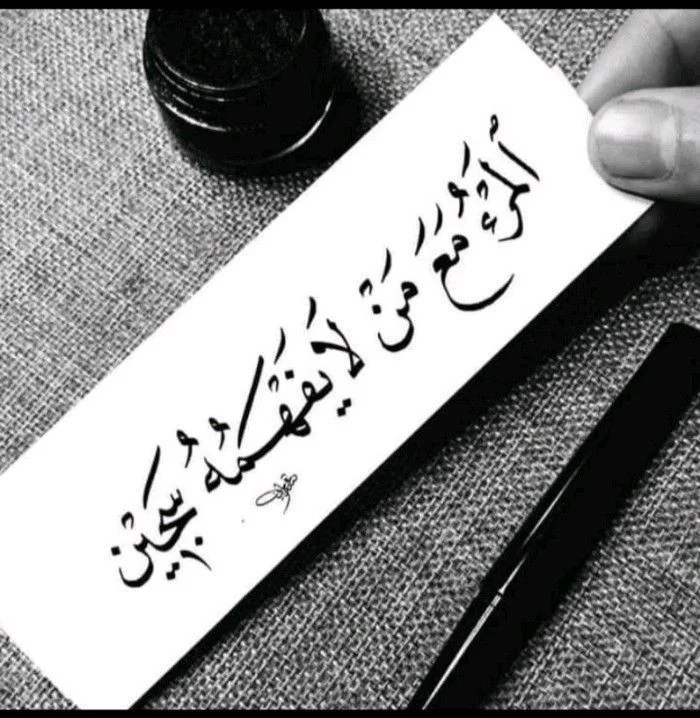 اَلمَرْءُ مَعَ مَنْ لَا يَفْهَمُهُ سَجِيْن